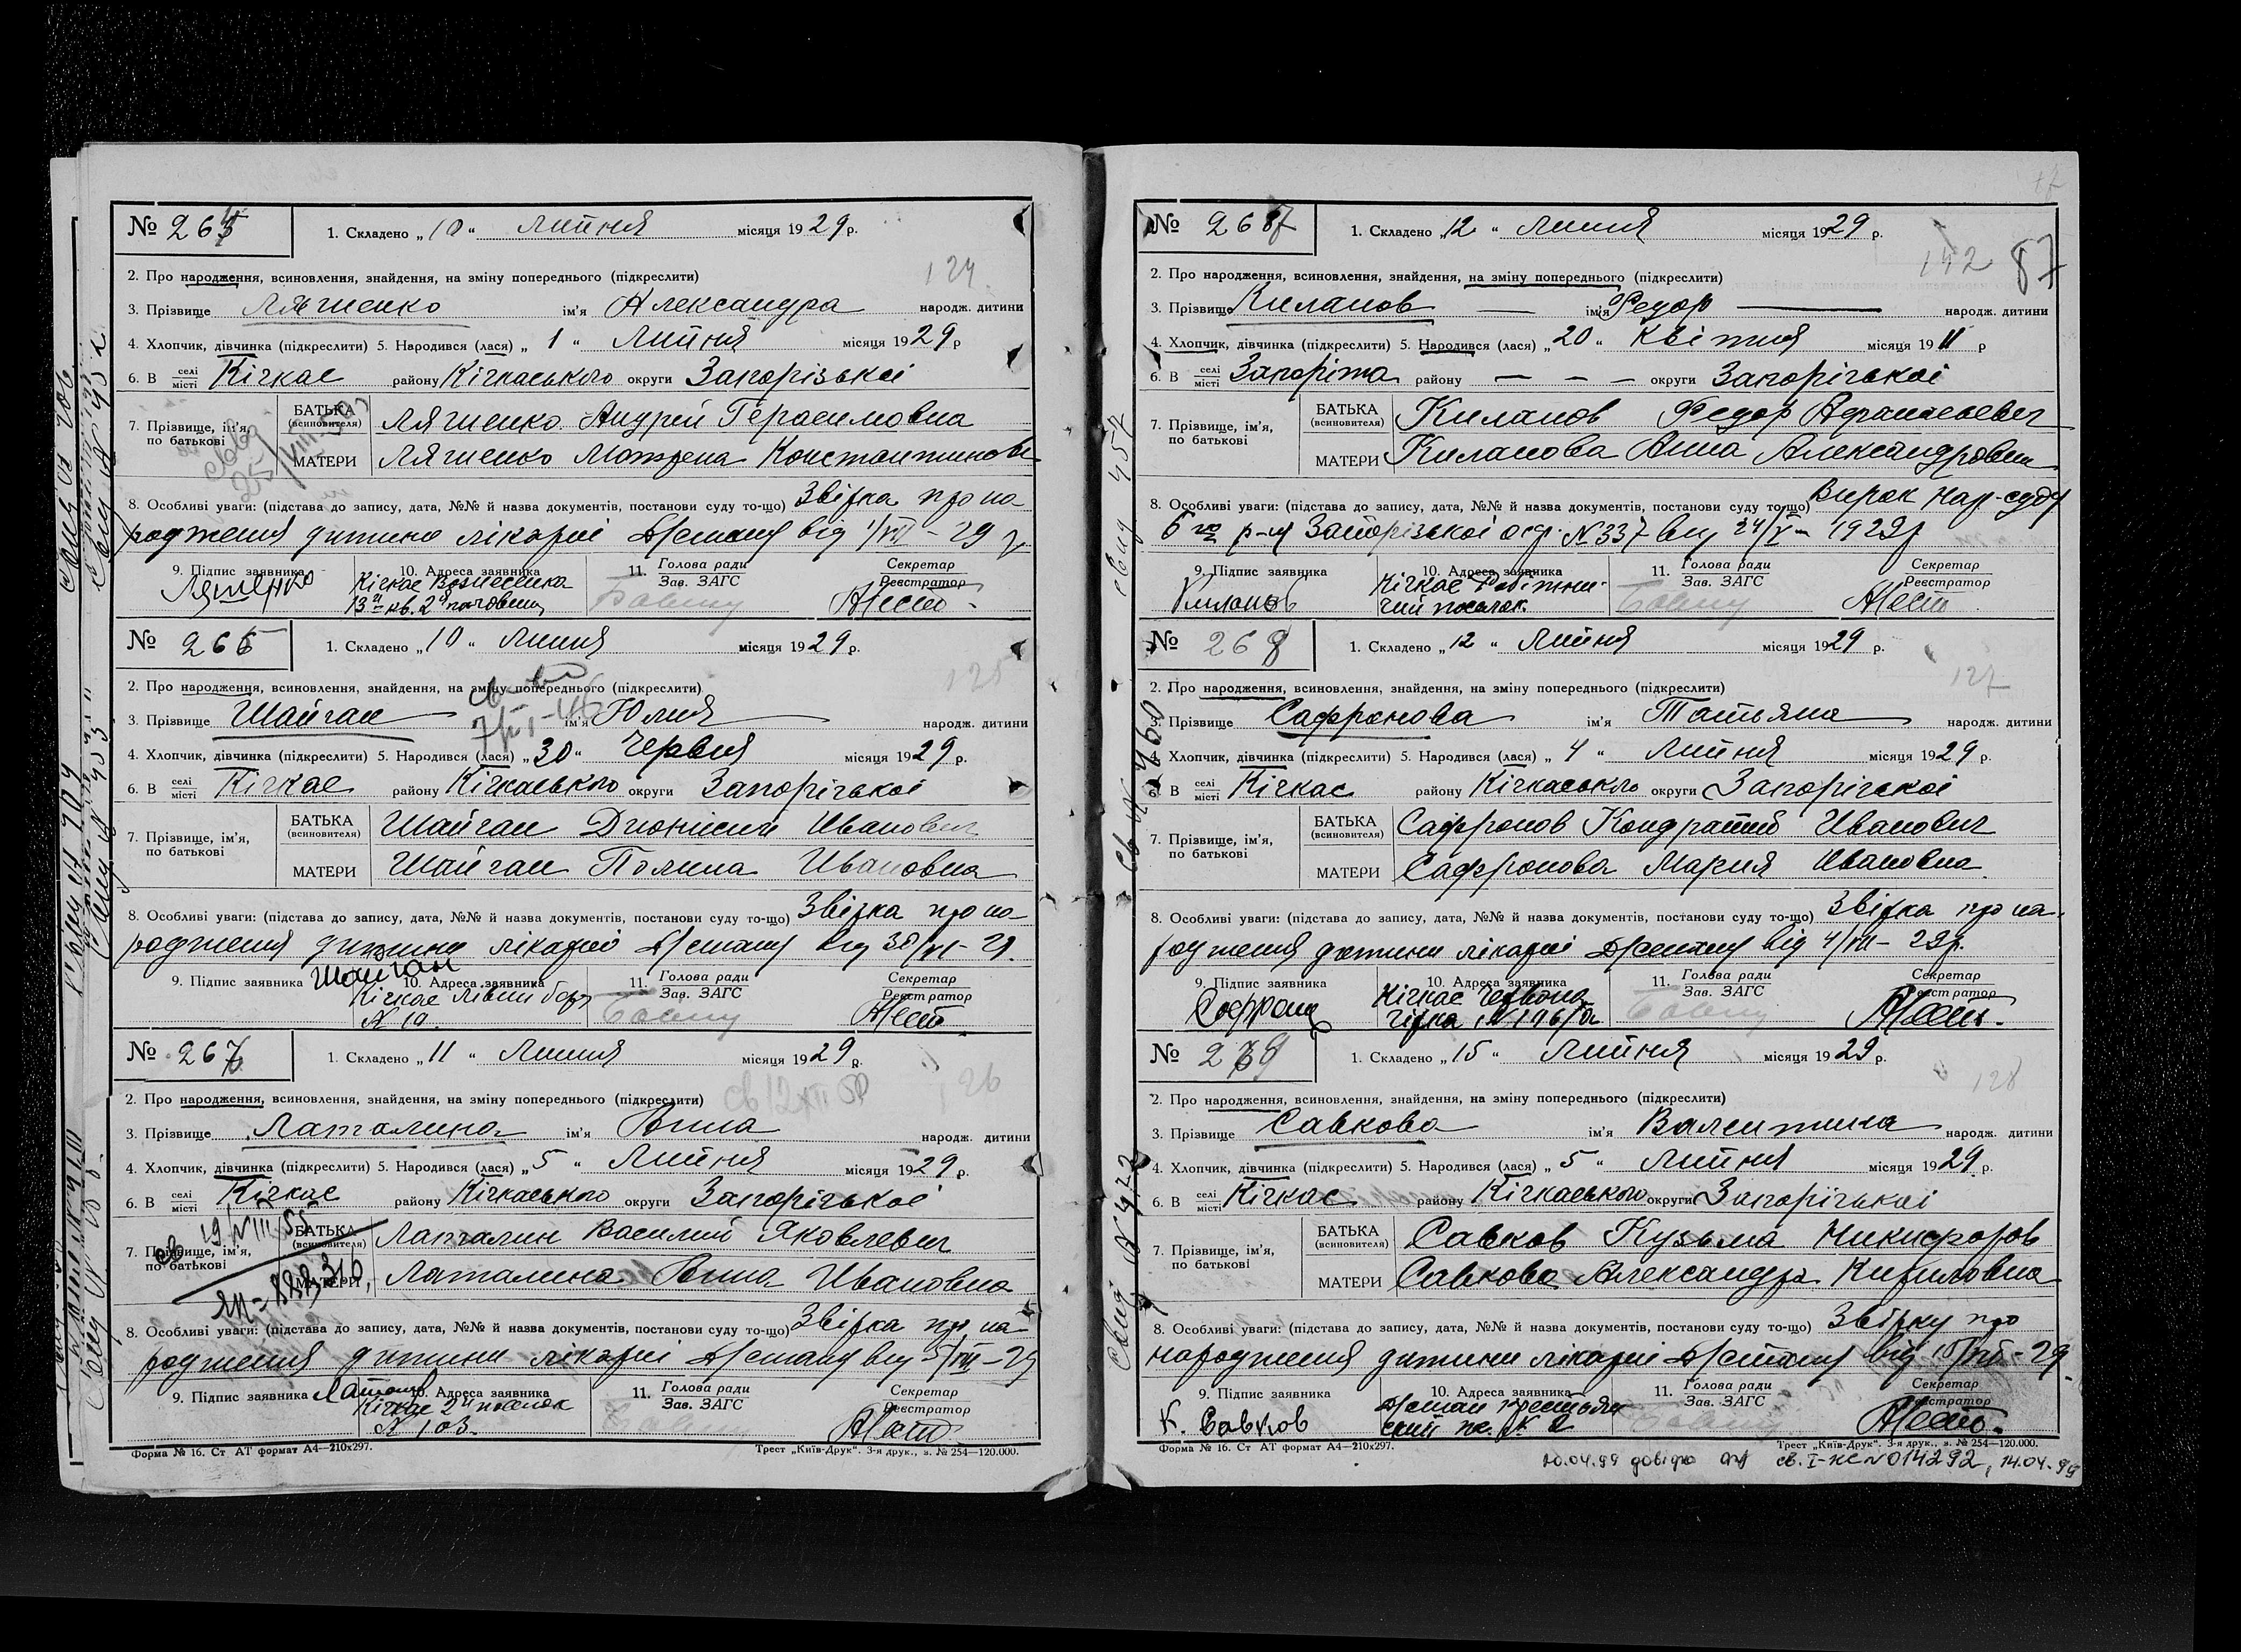 № 264
1. Складено „10“ Липня місяця 1929 р.
2. Про народження, всиновлення, знайдення, на зміну попереднього (підкреслити)
124
3. Прізвище Ляшенко ім'я Александра народж. дитини
4. Хлопчик, дівчинка (підкреслити) 5. Народився (лася) „1“ Липня місяця 1929 р
6. В селі місті Кічкас району Кічкаського округи Запорізькоі
7. Прізвище, ім'я, по батькові
БАТЬКА (всиновителя) Ляшенко Андрей Герасимовна
МАТЕРИ Ляшенко Матрена Константиновн
8. Особливі уваги: (підстава до запису, дата, №№ й назва документів, постанови суду то-що) Звірка про на
родження дитини лікарні Дністану від 1/VII – 29 р
9. Підпис заявника 10. Адреса заявника 11. Голова ради Зав. ЗАГС Секретар Реєстратор
Ляшенко Кічкас Вознесенка
13й кв. 2я половина
№ 265
1. Складено „10“ Липня місяця 1929 р.
2. Про народження, всиновлення, знайдення, на зміну попереднього (підкреслити)
125
3. Прізвище Шайган ім'я Юлия народж. дитини
4. Хлопчик, дівчинка (підкреслити) 5. Народився (лася) „30“ Червня місяця 1929 р.
6. В селі місті Кічкас району Кічкаського округи Запорізькоі
7. Прізвище, ім'я, по батькові
БАТЬКА (всиновителя) Шайган Дионисий Иванович
МАТЕРИ Шайган Полина Ивановна
8. Особливі уваги: (підстава до запису, дата, №№ й назва документів, постанови суду то-що) Звірка про на-
родження дитини лікарні від 30/VI – 29.
9. Підпис заявника Шайган 10. Адреса заявника 11. Голова ради Зав. ЗАГС Секретар Реєстратор
Кічкас Лівий бер
№ 10.
№ 267
1. Складено „11“ Липня місяця 1929 р.
св 12 XII 50
126
2. Про народження, всиновлення, знайдення, на зміну попереднього (підкреслити)
3. Прізвище Латалина ім'я Анна народж. дитини
4. Хлопчик, дівчинка (підкреслити) 5. Народився (лася) „5“ Липня місяця 1929 р.
6. В селі місті Кічкас району Кічкаського округи Запорізькоі
7. Прізвище, ім'я, по батькові
БАТЬКА (всиновителя) Латалин Василий Яковлевич
МАТЕРИ Латалина Анна Ивановна
8. Особливі уваги: (підстава до запису, дата, №№ й назва документів, постанови суду то-що) Звірка про на-
родження дитини лікарні від 5/VII – 29
9. Підпис заявника 10. Адреса заявника 11. Голова ради Зав. ЗАГС Секретар Реєстратор
Кічкас 2й поселок
№ 103.
Форма № 16. Ст АТ формат А4—210х297. Трест „Київ-Друк“. 3-я друк., з. № 254—120.000.
№ 267
1. Складено „12“ Липня місяця 1929 р.
2. Про народження, всиновлення, знайдення, на зміну попереднього (підкреслити)
142 87
3. Прізвище Киланов ім'я Федор народж. дитини
4. Хлопчик, дівчинка (підкреслити) 5. Народився (лася) „20“ Квітня місяця 1911 р
6. В селі місті Запоріжа району — — — округи Запорізькоі
7. Прізвище, ім'я, по батькові
БАТЬКА (всиновителя) Киланов Федор Афанасьевич
МАТЕРИ Киланова Анна Александровна
8. Особливі уваги: (підстава до запису, дата, №№ й назва документів, постанови суду то-що) Вирок Нар-суду
6го р-ну Запорізькоі окр. № 337 від 24/V – 1929 р
9. Підпис заявника 10. Адреса заявника 11. Голова ради Зав. ЗАГС Секретар Реєстратор
Киланов Кічкас Робітни-
чий поселок.
№ 268
1. Складено „12“ Липня місяця 1929 р.
2. Про народження, всиновлення, знайдення, на зміну попереднього (підкреслити)
127
3. Прізвище Сафронова ім'я Татьяна народж. дитини
4. Хлопчик, дівчинка (підкреслити) 5. Народився (лася) „4“ Липня місяця 1929 р.
6. В селі місті Кічкас району Кічкаського округи Запорізькоі
7. Прізвище, ім'я, по батькові
БАТЬКА (всиновителя) Сафронов Кондратий Иванович
МАТЕРИ Сафронова Мария Ивановна
8. Особливі уваги: (підстава до запису, дата, №№ й назва документів, постанови суду то-що) Звірка про на-
родження дитини лікарні від 4/VII – 29 р.
9. Підпис заявника 10. Адреса заявника 11. Голова ради Зав. ЗАГС Секретар Реєстратор
Кічкас Червона
гірка № 196/а
№ 269
1. Складено „15“ Липня місяця 1929 р.
128
2. Про народження, всиновлення, знайдення, на зміну попереднього (підкреслити)
3. Прізвище Савкова ім'я Валентина народж. дитини
4. Хлопчик, дівчинка (підкреслити) 5. Народився (лася) „5“ Липня місяця 1929 р.
6. В селі місті Кічкас району Кічкаського округи Запорізькоі
7. Прізвище, ім'я, по батькові
БАТЬКА (всиновителя) Савков Кузьма Никифоров
МАТЕРИ Савкова Александра Кириловна
8. Особливі уваги: (підстава до запису, дата, №№ й назва документів, постанови суду то-що) Звірку про
народження дитини лікарні від 15/VII – 29.
9. Підпис заявника 10. Адреса заявника 11. Голова ради Зав. ЗАГС Секретар Реєстратор
К. Савков
Форма № 16. Ст АТ формат А4—210х297. Трест „Київ-Друк“. 3-я друк., з. № 254—120.000.
20.04.99 довідка св. I-НС № 014292, 14.04.99